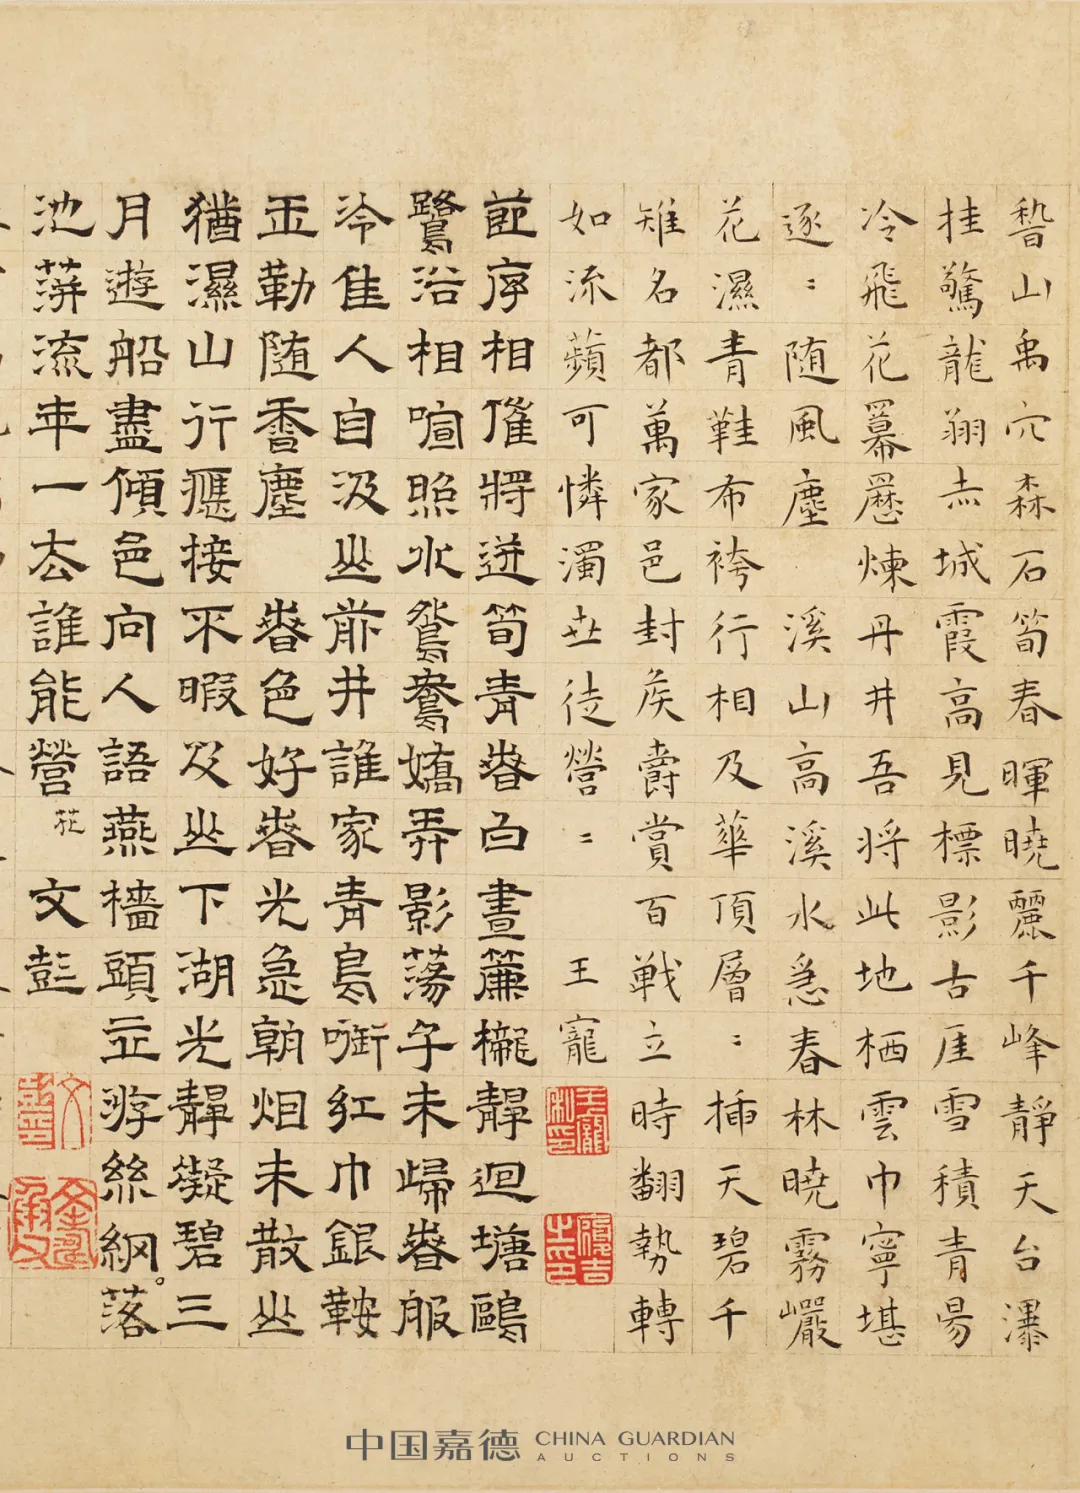 嵆山禹穴森石筍春暉曉麗千峰靜天台瀑
挂驚龍翔赤城霞高見標影古厓雪積青陽
冷飛花羃歷煉丹井吾将此地栖雲巾寧堪
逐〻随風塵 溪山高溪水急春林曉霧巖
花濕青鞋布袴行相及華頂層〻插天碧千
雉名都萬家邑封侯爵賞百戦立時翻勢轉
如流蘋可憐濁世徒營〻 王寵
節序相催將迸筍青春白晝簾櫳靜迴塘鷗
鷺浴相喧照水鴛鴦嬌弄影蕩子未歸春服
冷佳人自汲山前井誰家青鳥銜紅巾銀鞍
玉勒随香塵 春色好春光急朝烟未散山
猶濕山行應接不暇及山下湖光靜凝碧三
月遊船盡傾邑向人語燕檣頭立游絲網落
池萍流年一去誰能營花 文彭
王寵私印
履吉之印
中国嘉德 CHINA GUARDIAN
AUCTIONS